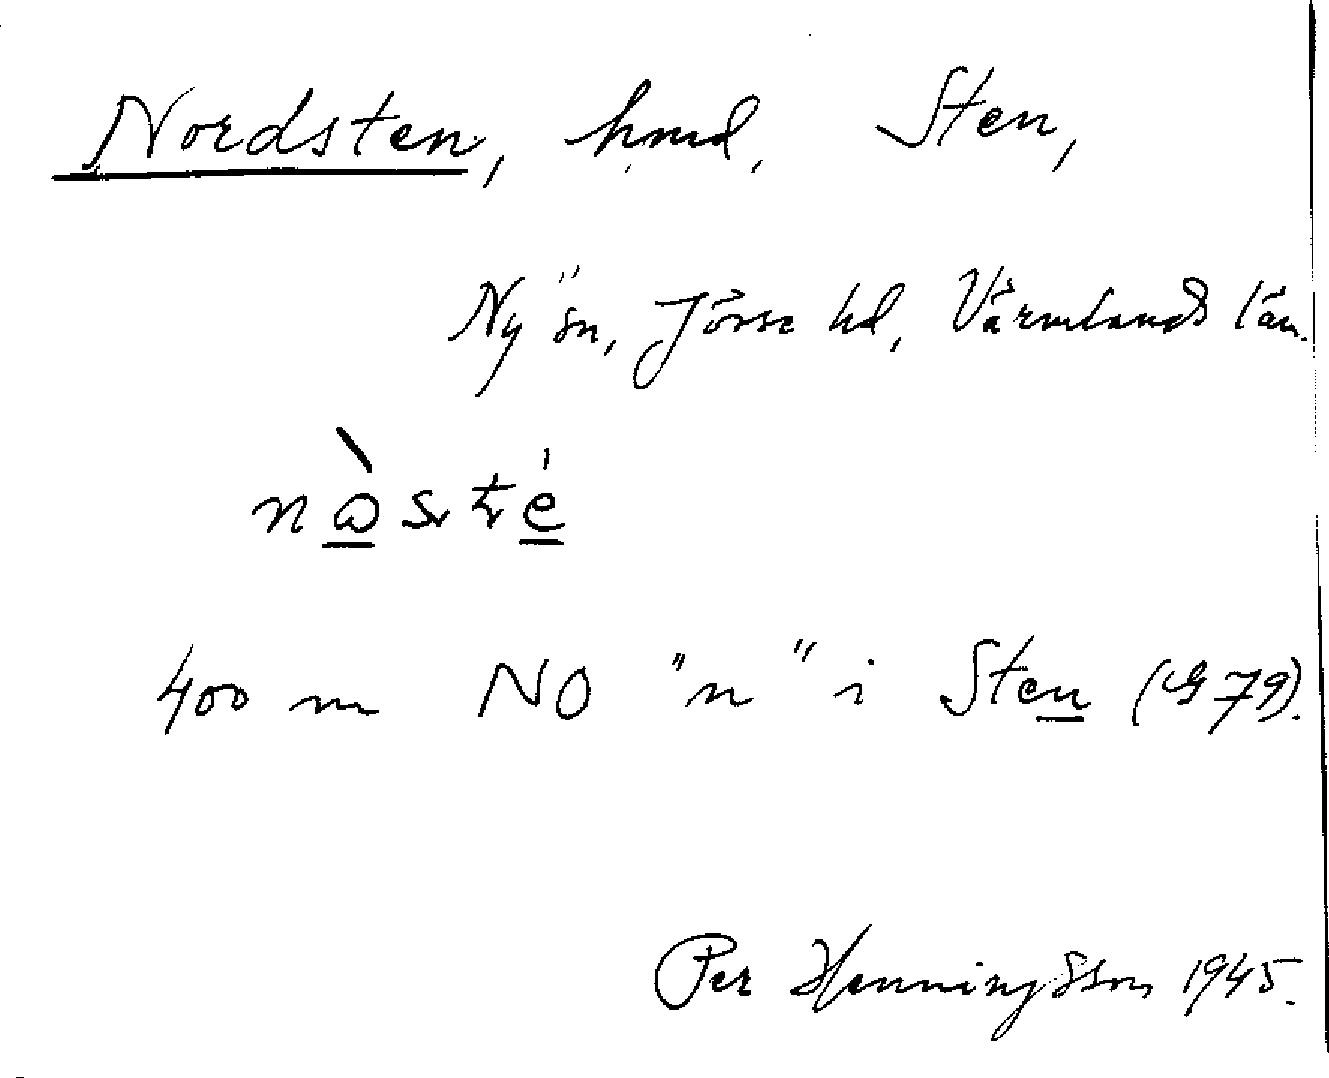 Nordsten, hmd, Sten,
Ny sn, Jösse hd, Värmlands län.
400 m NO "n" i Sten (G 79).
Per Henningsson 1945.